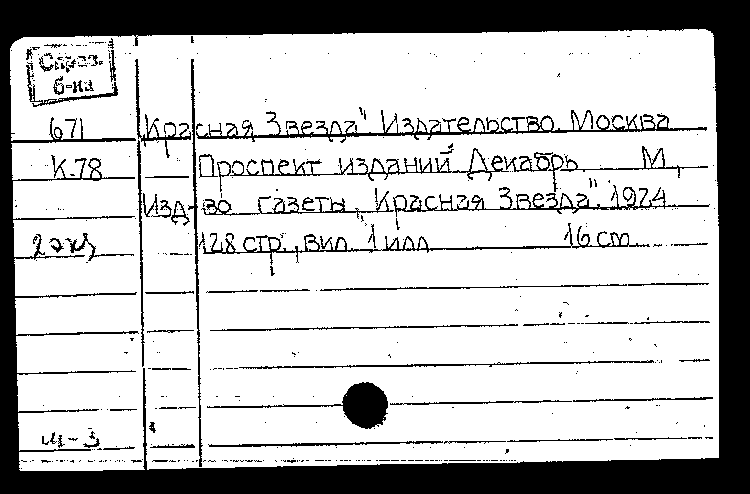 Справ.
б-ка
671 „Красная Звезда" Издательство. Москва
К.78 Проспект изданий. Декабрь. М.,
Изд-во газеты „Красная Звезда". 1924.
2 экз 128 стр., вкл. 1 илл. 16 cm